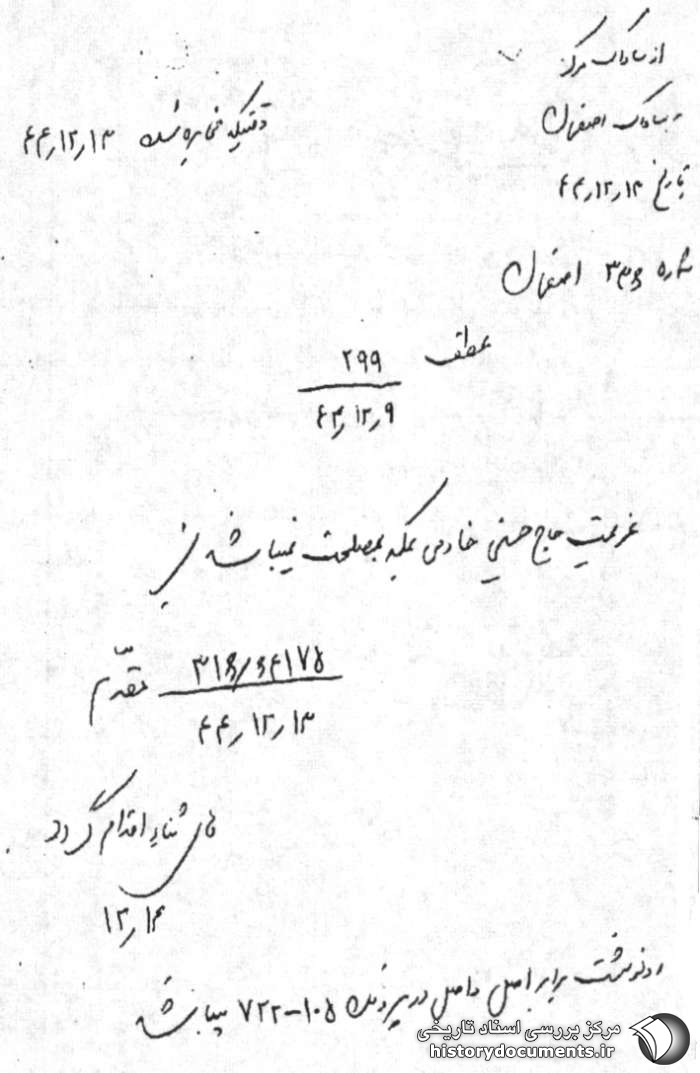 از ساواک مرکز
به ساواک اصفهان
تاریخ ۴۴٫۱۲٫۱۳
دقتیکه مخابره شده ۴۴٫۱۲٫۱۳
شماره ۳۳۶ اصفهان
عطف ۲۹۹
۴۴٫۱۲٫۹
عزیمت حاج حسنی خادمی بمکه بمصلحت نمیباشد
۳۱۶٫۶۴۱۷۵ مقدم
۴۴٫۱۲٫۱۳
اقدام گردد
۱۲٫۱۴
رونوشت برابر اصل و اصل در پرونده ۱۰۵-۷۲۲ میباشد
مرکز بررسی اسناد تاریخی
historydocuments.ir